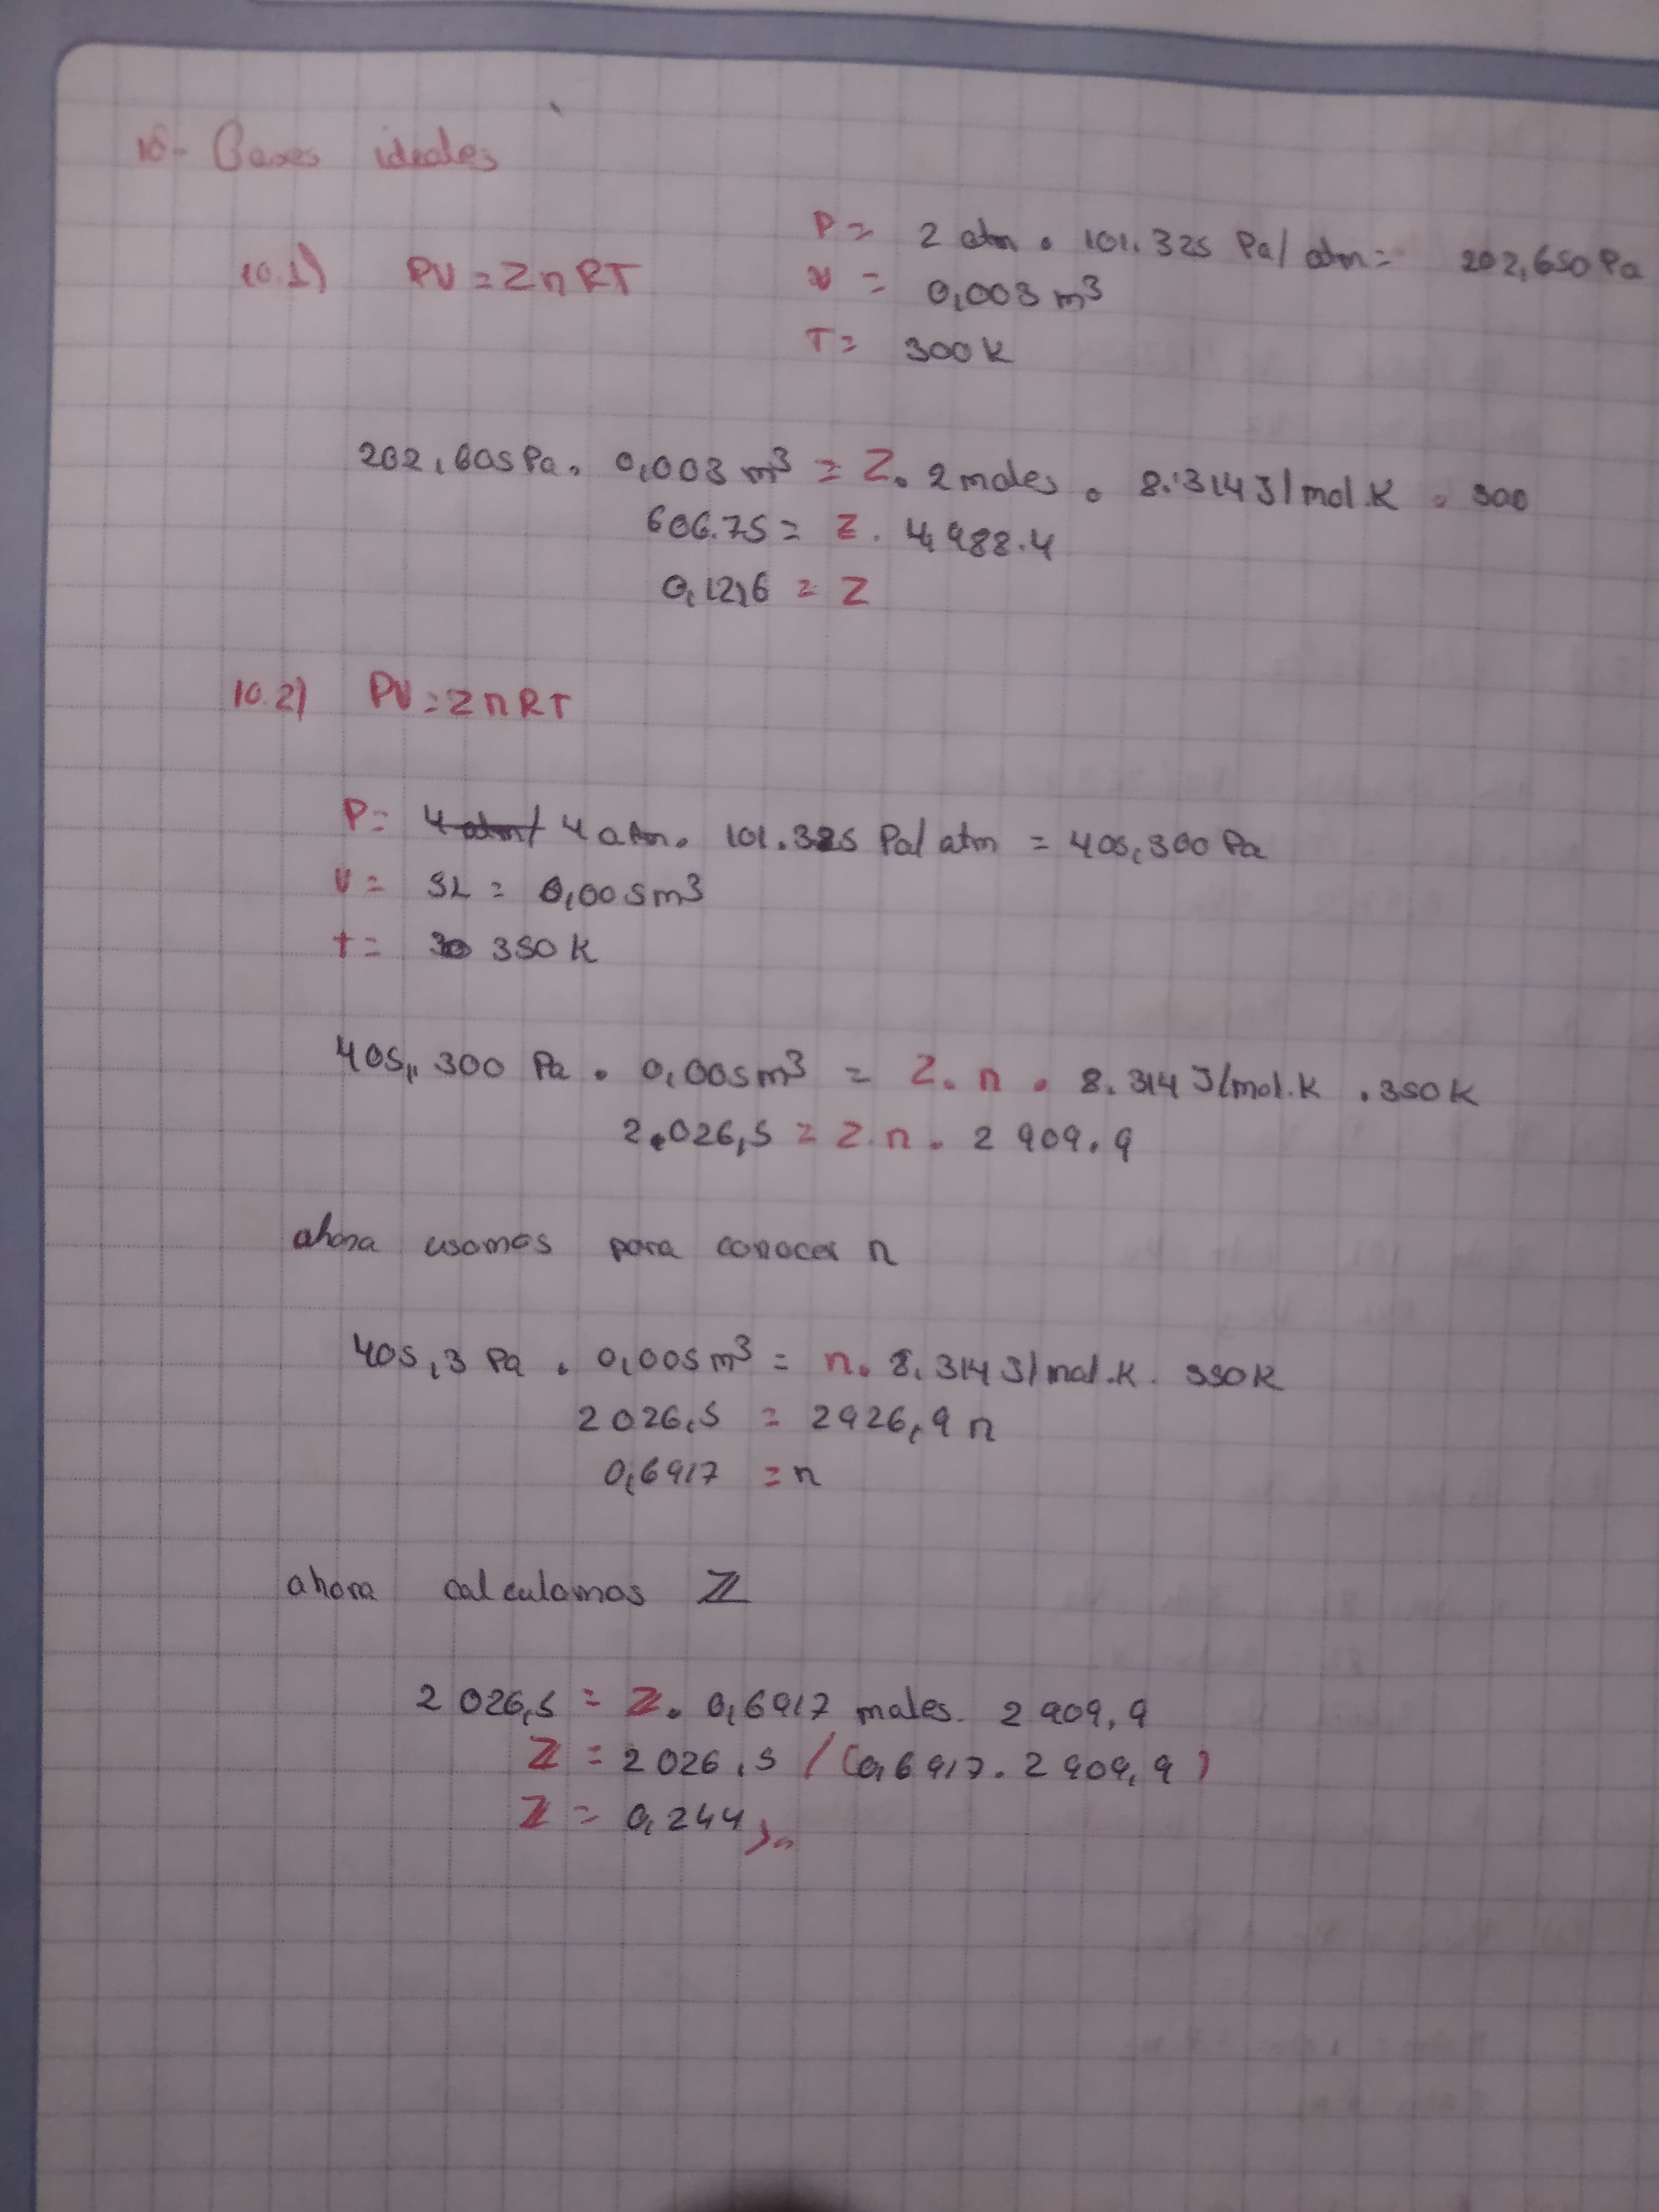 10- Gases ideales
10.1) PV = Z n RT
P = 2 atm . 101.325 Pa/atm = 202,650 Pa
v = 0,003 m³
T = 300 K
202,605 Pa . 0,003 m³ = Z. 2 moles . 8.314 J/mol.K . 300
606.75 = Z . 4,988.4
0,1216 = Z
10.2) PV = Z n RT
P = 4 atm/ 4 atm. 101.325 Pa/atm = 405,300 Pa
V = 5L = 0,005 m³
t = 30 350 K
405,, 300 Pa . 0,005 m³ = Z. n . 8.314 J/mol.K . 350 K
2.026,5 = Z.n . 2 909.9
ahora usamos para conocer n
405,3 Pa . 0,005 m³ = n. 8.314 J/mol.K . 350 K
2 026,5 = 2926,9 n
0,6917 = n
ahora calculamos Z
2 026,5 = Z. 0,6917 moles. 2 909,9
Z = 2 026,5 / (0,6917. 2 909,9)
Z = 0,244